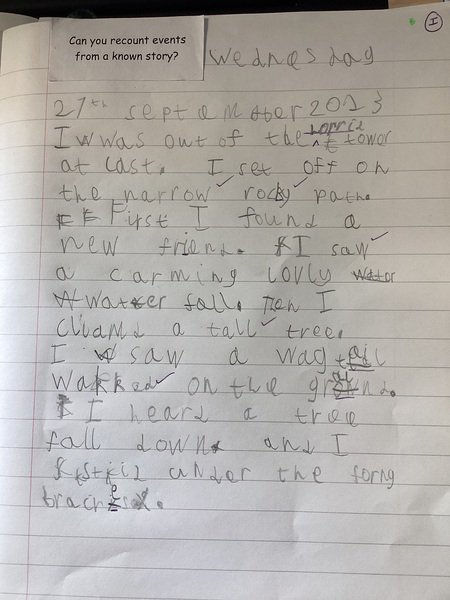 Can you recount events
from a known story?
I
Wednesday
27th september 2013
I wwas out of the horrid tower
at last. I set off on
the narrow rocky path.
First I found a
new friend. I saw
a carming lovly
water fall. Then I
climd a tall tree.
I saw a wagtail
walked on the ground.
I heard a tree
fall down. and I
under the